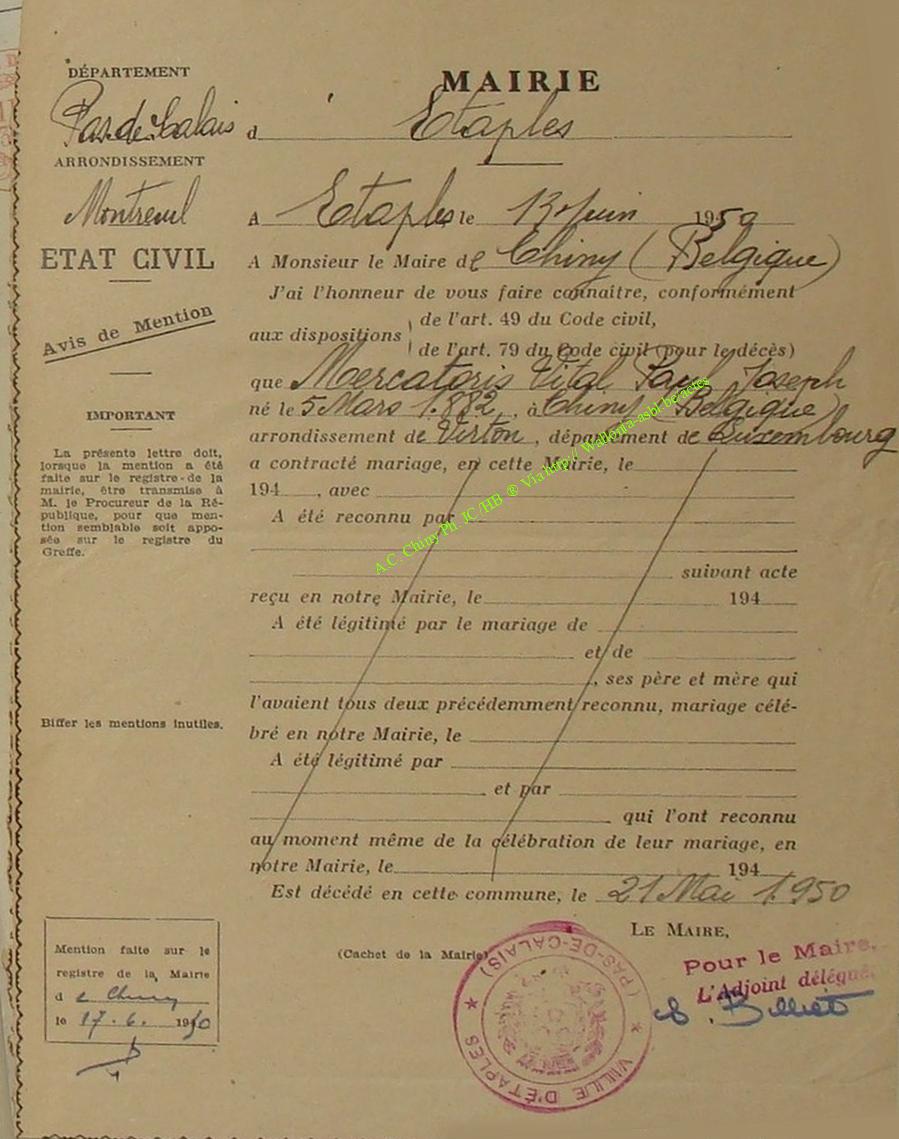 DÉPARTEMENT
Pas-de-Calais
ARRONDISSEMENT
Montreuil
ETAT CIVIL
Avis de Mention
IMPORTANT
La présente lettre doit,
lorsque la mention a été
faite sur le registre de la
mairie, être transmise à
M. le Procureur de la Ré-
publique, pour que men-
tion semblable soit appo-
sée sur le registre du
Greffe.
Biffer les mentions inutiles.
MAIRIE
d Etaples
A Etaples, le 13 Juin 1950
A Monsieur le Maire de Chiny (Belgique)
J'ai l'honneur de vous faire connaître, conformément
aux dispositions
de l'art. 49 du Code civil,
de l'art. 79 du Code civil (pour le décès)
que Mercatoris Vital Paul Joseph
né le 5 Mars 1.882, à Chiny (Belgique)
arrondissement de Virton, département de Luxembourg
a contracté mariage, en cette Mairie, le
194 , avec
A été reconnu par
suivant acte
reçu en notre Mairie, le 194
A été légitimé par le mariage de
et de
, ses père et mère qui
l'avaient tous deux précédemment reconnu, mariage célé-
bré en notre Mairie, le
A été légitimé par
et par
qui l'ont reconnu
au moment même de la célébration de leur mariage, en
notre Mairie, le 194
Est décédé en cette commune, le 21 Mai 1.950
LE MAIRE,
(Cachet de la Mairie)
Pour le Maire,
L'Adjoint délégué,
VILLE D'ÉTAPLES
(PAS-DE-CALAIS)
Mention faite sur le
registre de la Mairie
d e Chiny
le 17.6. 1950
A.C. Chiny Ph. JC/HB ® Via http// Wallonia-asbl be/actes